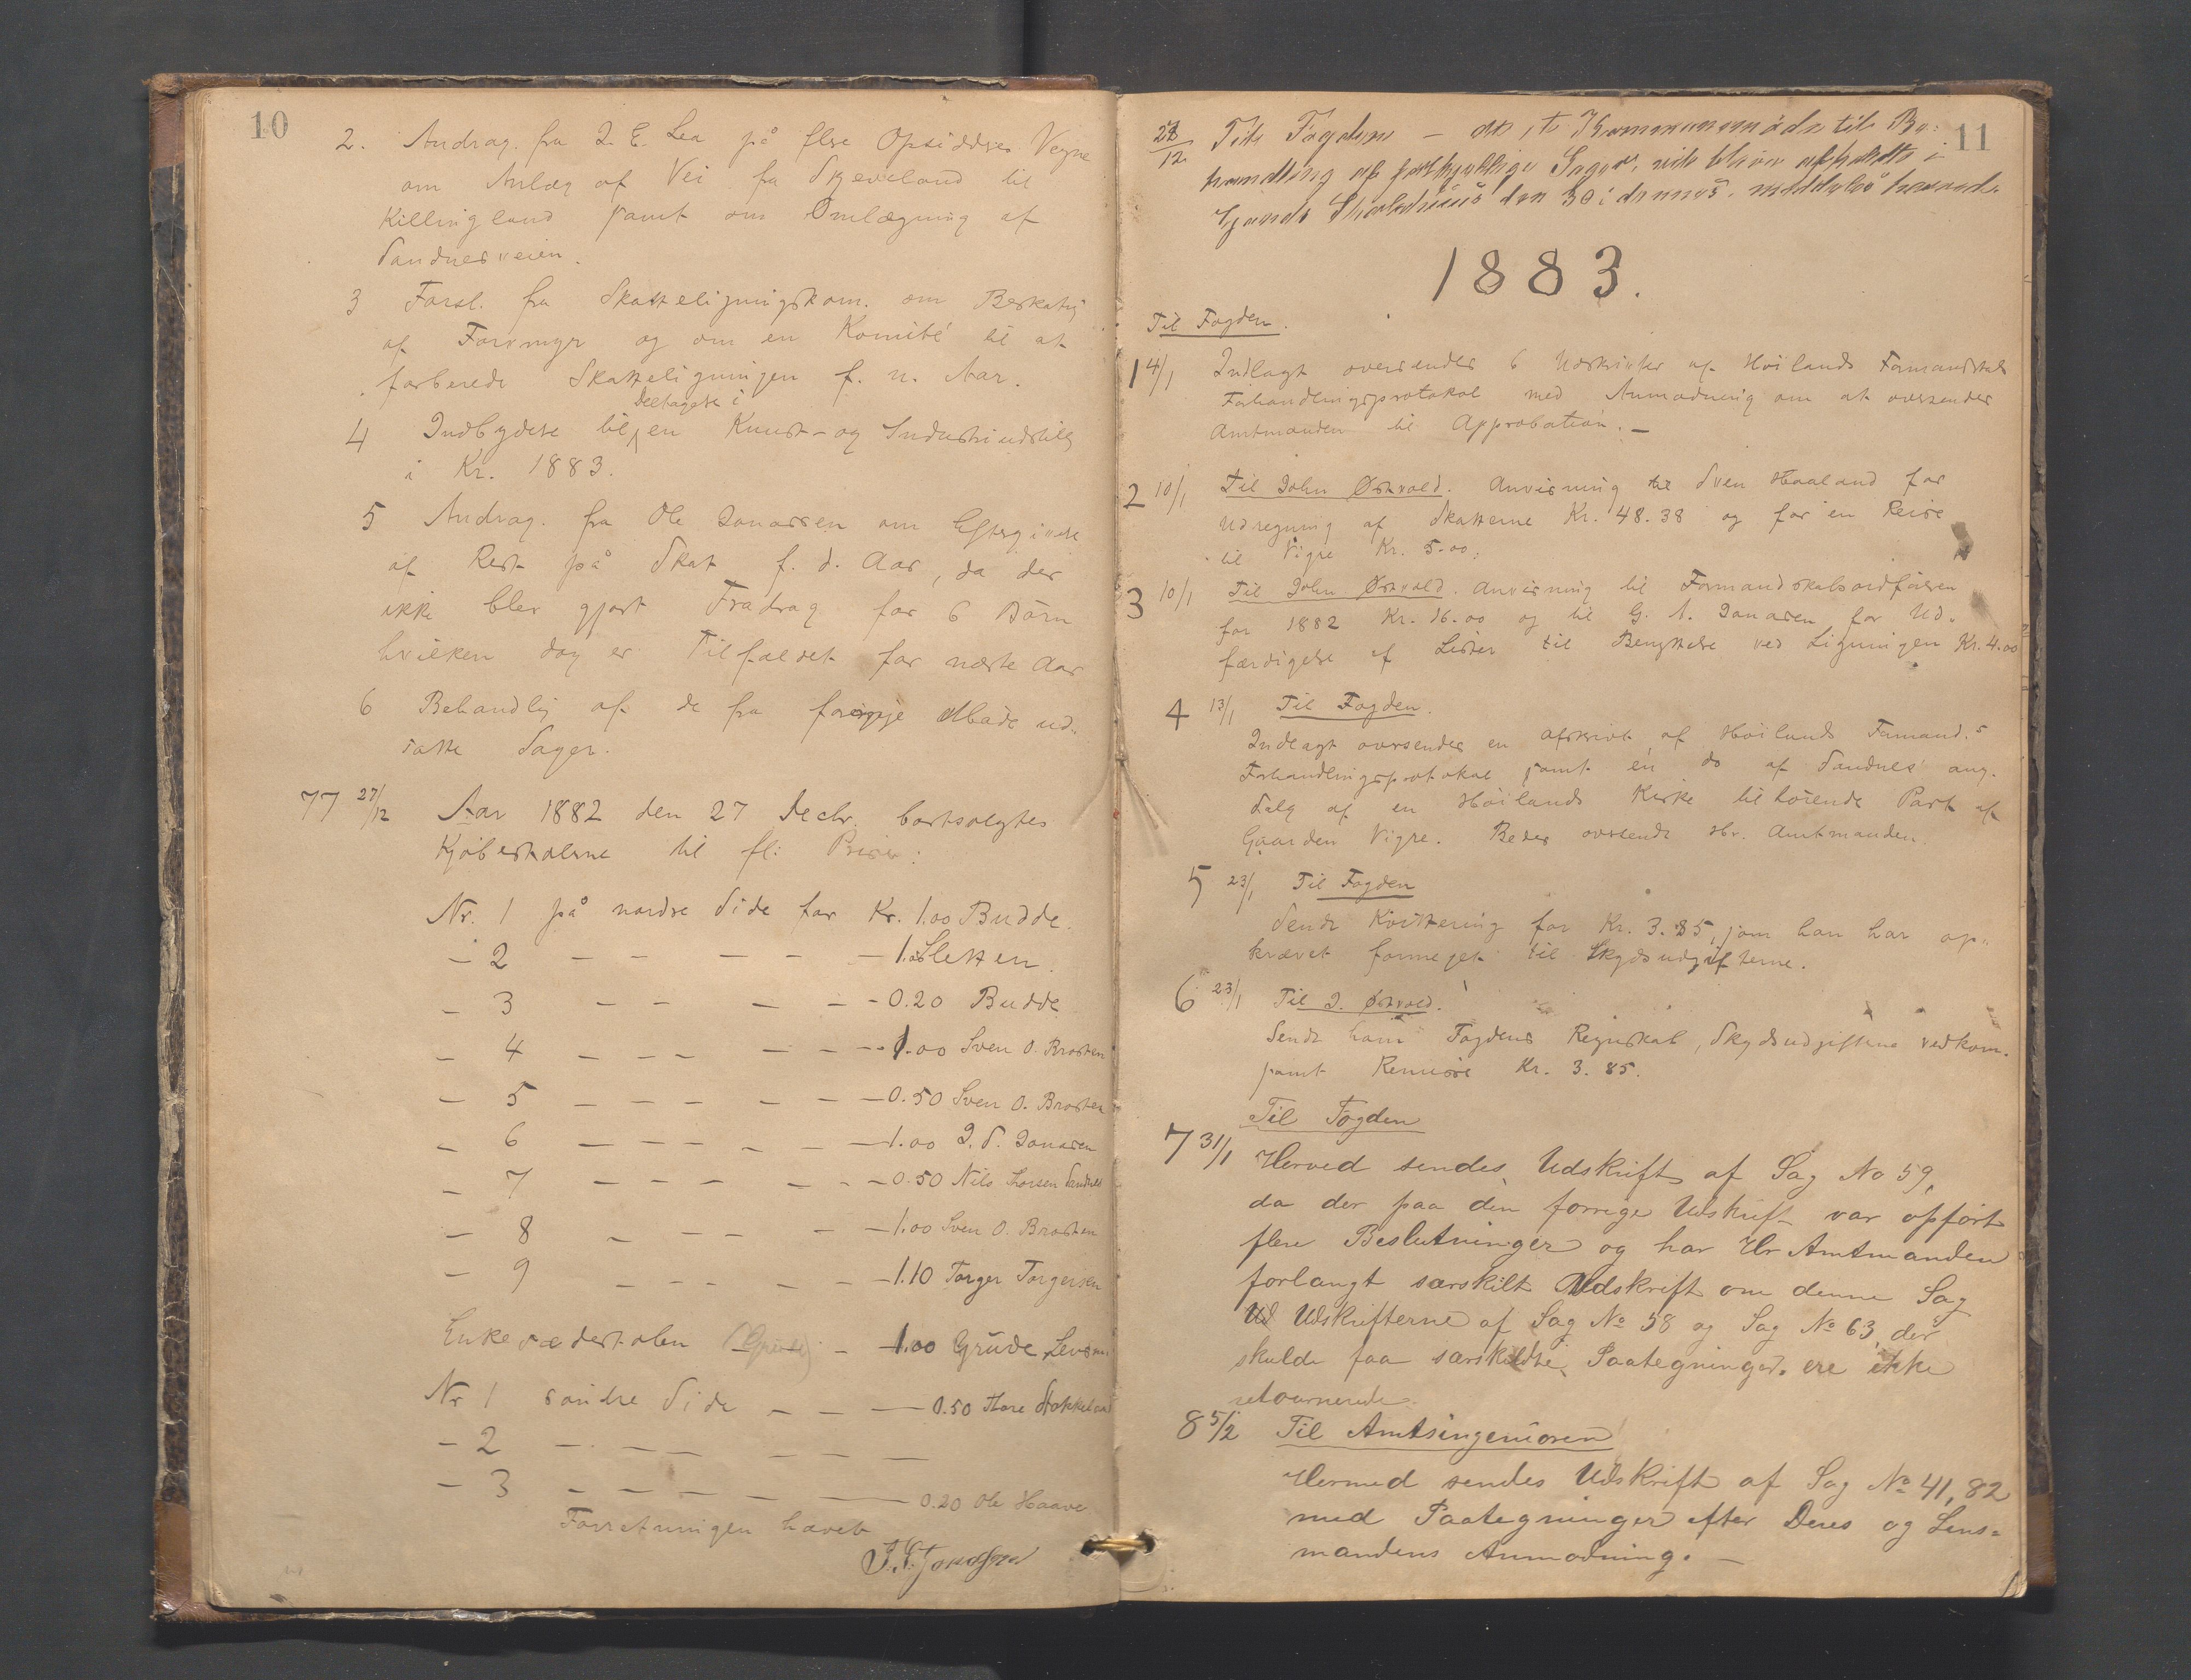 10
2. Andrag. fra J. E. Lea på flere Opsidderes Vegne
om Anlæg af Vei fra Skjeveland til
Killingland samt om Omlægning af
Sandnesveien.
3 Forsl. fra Skatteligningskom. om Beskatng
af Formyr og om en Komité til at
forberede Skatteligningen f. n. Aar.
Deeltagelse i
4 Indbydelse til en Kunst- og Industriudstillg
i Kr. 1883.
5 Andrag. fra Ole Jonassen om Eftergivelse
af Rest på Skat f. d. Aar, da der
ikke blev gjort Fradrag for 6 Børn
hvilken dog er Tilfældet for næste Aar
6 Behandlg af de fra forrige Møde ud-
satte Sager.
77 27/12 Aar 1882 den 27 Decbr. bortsolgtes
Kjøbestolene til fl: Priser:
Nr. 1 på nordre Side for Kr. 1.00 Budde.
– 2 – – – – – 1.00 Sletten.
– 3 – – – – – 0.20 Budde
– 4 – – – – – – 1.00 Sven O. Brosten
– 5 – – – – – – 0.50 Sven O. Brosten
– 6 – – – – – – 1.00 J. S. Jonasen
– 7 – – – – – – 0.50 Nils Thorsen Sandnes
– 8 – – – – – 1.00 Sven O. Brosten
– 9 – – – – – – 1.10 Torger Torgersen
Enkesædestolen (Grude) – 1.00 Grude
Nr 1 søndre Side – – – 0.50 Tore Stokkeland
– 2 – – – – – –
– 3 – – – – – 0.20 Ole Haave
Forretningen hævet
J. S. Jonassen
11
28/12 Til Fogden – at et Kommunemøde til Be-
handling af forskjellige Sager, vil blive afholdt i
Skolehuus den 30 i dennes, meddeles herved.
1883.
Til Fogden.
1 4/1 Indlagt oversendes 6 Udskrifter af Høilands Formandskabs
Forhandlingsprotokol med Anmodning om at oversendes
Amtmanden til Approbation. –
2 10/1 Til John Østvold. Anvisning til Sven Haaland for
Udregning af Skatterne Kr. 48.38 og for en Reise
til Vigre Kr. 5.00.
3 10/1 Til John Østvold. Anvisning til Formandskabsordføreren
for 1882 Kr. 16.00 og til G. A. Jonasen for Ud-
færdigelse af Lister til Benyttelse ved Ligningen Kr. 4.00
4 13/1 Til Fogden.
Indlagt oversendes en Afskrivt af Høilands Formand.s
Forhandlingsprotokol samt en do af Sandnes ang.
Salg af en Høilands Kirke tilhørende Part af
Gaarden Vigre. Bedes oversendt Hr. Amtmanden.
5 23/1 Til Fogden
Sendt Kvittering for Kr. 3.85, som han har op-
krævet formeget til Skydsudgifterne.
6 23/1 Til J. Østvold.
Sendt ham Fogdens Regnskab, Skydsudgifterne vedkom.
samt Remisse Kr. 3.85.
Til Fogden
7 31/1 Herved sendes Udskrift af Sag No 59,
da der paa den forrige Udskrift var opført
flere Beslutninger og har Hr Amtmanden
forlangt særskilt Udskrift om denne Sag
Ud Udskrifterne af Sag No 58 og Sag No 63, der
skulde faa særskildte Paategninger. ere ikke
retournerede.
8 5/2 Til Amtsingeniøren
Hermed sendes Udskrift af Sag No 41, 82
med Paategninger efter Deres og Lens-
mandens Anmodning. –